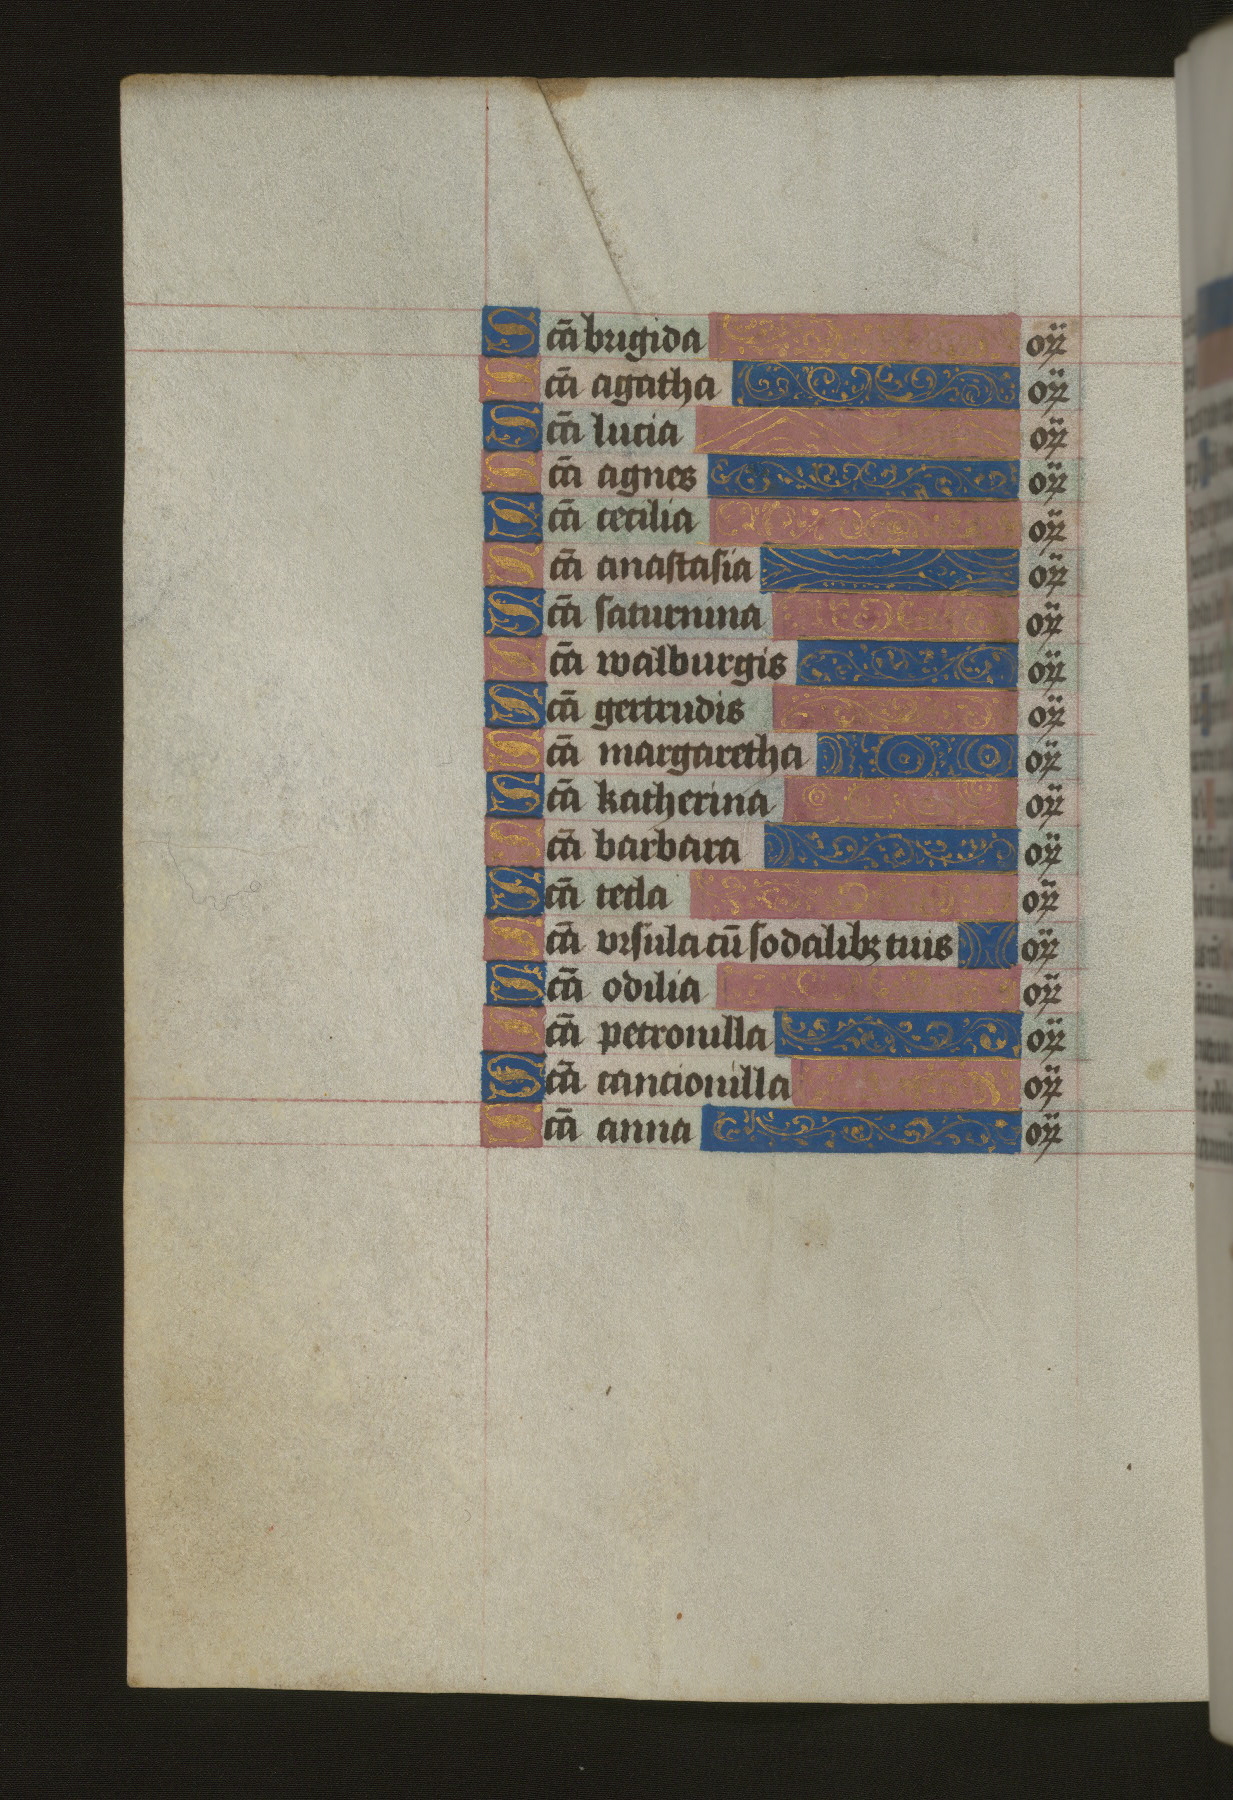 Scā brigida or
Scā agatha or
Scā lucia or
Scā agnes or
Scā cecilia or
Scā anastasia or
Scā saturnina or
Scā walburgis or
Scā gertrudis or
Scā margaretha or
Scā katherina or
Scā barbara or
Scā tecla or
Scā vrsula cū sodalibꝫ tuis or
Scā odilia or
Scā petronilla or
Scā cancionilla or
Scā anna or